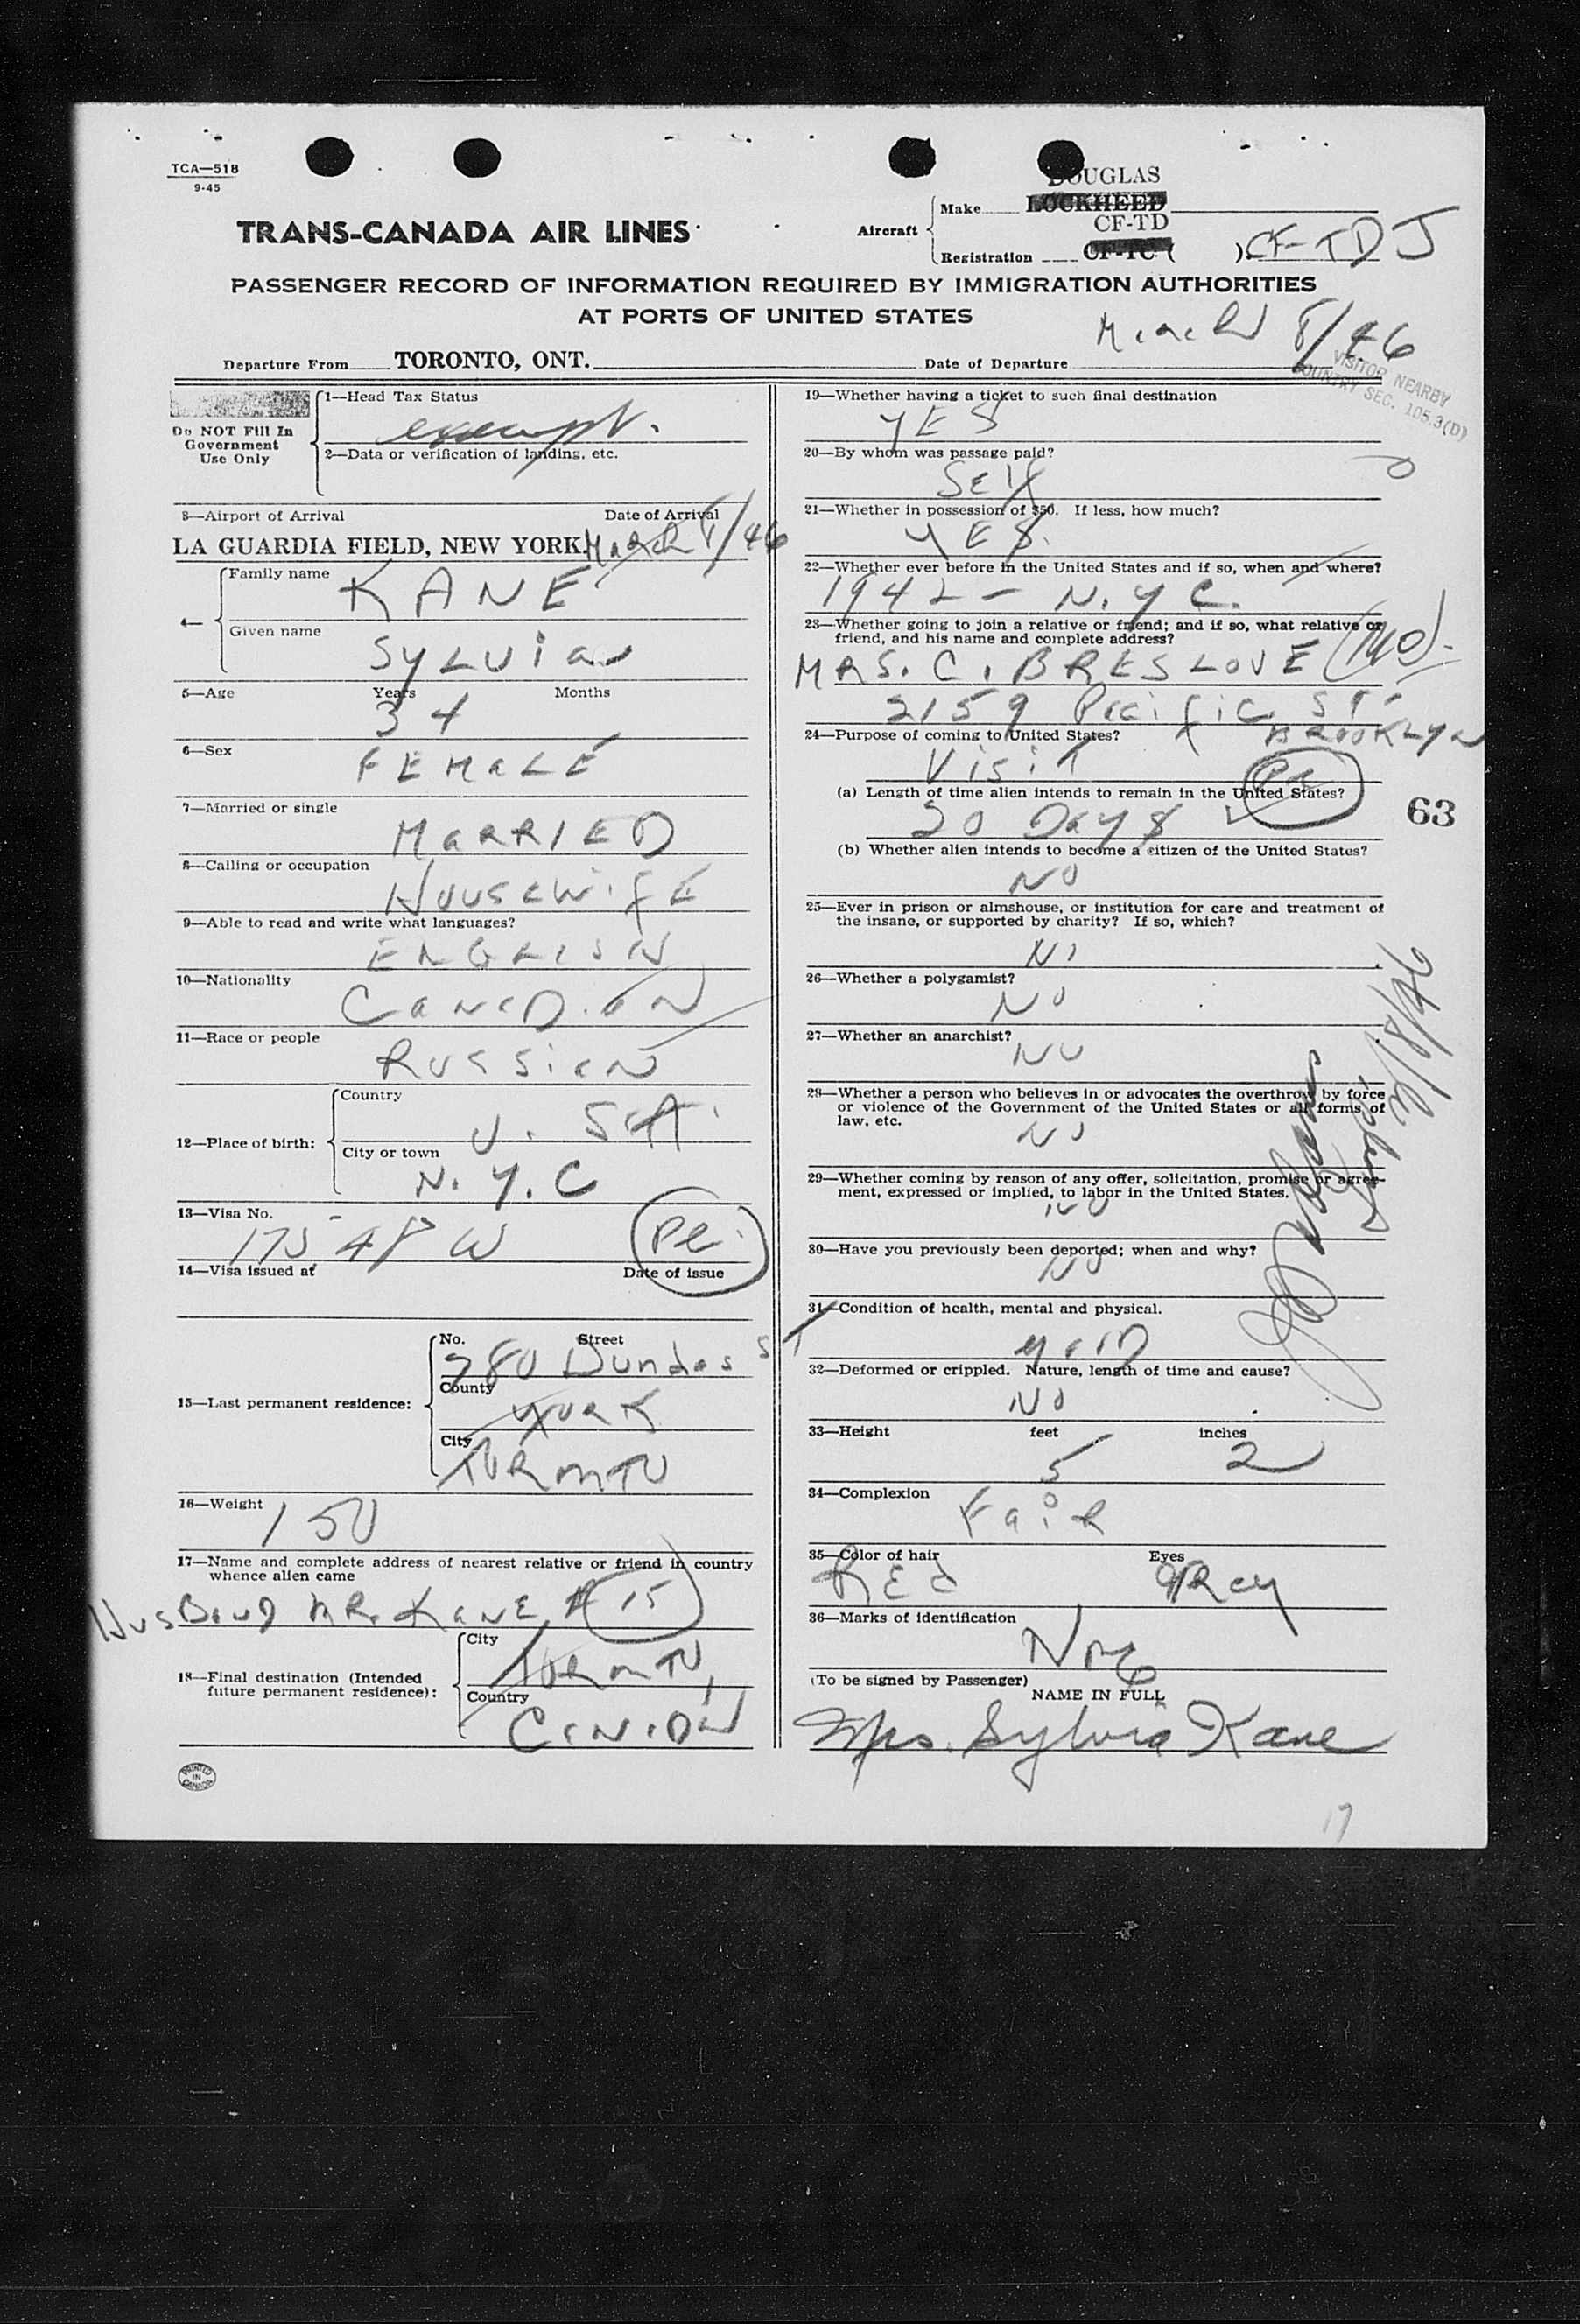 TCA—518
9-45
TRANS-CANADA AIR LINES
Aircraft
Make DOUGLAS
LOCKHEED
CF-TD
Registration CF-TC ( ) CF-TDJ
PASSENGER RECORD OF INFORMATION REQUIRED BY IMMIGRATION AUTHORITIES
AT PORTS OF UNITED STATES
Departure From TORONTO, ONT. Date of Departure March 8/46
VISITOR NEARBY
COUNTRY SEC. 105.3(D)
Do NOT Fill In
Government
Use Only
1—Head Tax Status
exempt.
2—Data or verification of landing, etc.
3—Airport of Arrival Date of Arrival
LA GUARDIA FIELD, NEW YORK. March 8/46
4—
Family name
KANE
Given name
SYLVia
5—Age Years Months
34
6—Sex
FEMaLE
7—Married or single
MaRRIED
8—Calling or occupation
HouseWifE
9—Able to read and write what languages?
ENGLISH
10—Nationality
CaNaDiaN
11—Race or people
RUSSiaN
12—Place of birth:
Country
U.S.A.
City or town
N.Y.C
13—Visa No.
17548 W
14—Visa issued at Date of issue
15—Last permanent residence:
No. Street
280 Dundas ST
County
YORK
City
TORONTO
16—Weight
150
17—Name and complete address of nearest relative or friend in country
whence alien came
HusBand MR. KaNE # 15
18—Final destination (Intended
future permanent residence):
City
TORONTO,
Country
CaNaDa
PRINTED
IN
CANADA
19—Whether having a ticket to such final destination
YES
20—By whom was passage paid?
SELF
21—Whether in possession of $50. If less, how much?
YES.
22—Whether ever before in the United States and if so, when and where?
1942 — N.Y.C.
23—Whether going to join a relative or friend; and if so, what relative or
friend, and his name and complete address?
MRS. C. BRESLOVE
2159 Pacific ST.
BROOKLYN
24—Purpose of coming to United States?
VisiT
(a) Length of time alien intends to remain in the United States?
20 Days
63
(b) Whether alien intends to become a citizen of the United States?
NO
25—Ever in prison or almshouse, or institution for care and treatment of
the insane, or supported by charity? If so, which?
NO
26—Whether a polygamist?
NO
27—Whether an anarchist?
NO
28—Whether a person who believes in or advocates the overthrow by force
or violence of the Government of the United States or all forms of
law, etc.
NO
29—Whether coming by reason of any offer, solicitation, promise or agree-
ment, expressed or implied, to labor in the United States.
NO
30—Have you previously been deported; when and why?
NO
31—Condition of health, mental and physical.
gooD
32—Deformed or crippled. Nature, length of time and cause?
NO
33—Height feet inches
5 2
34—Complexion
FaiR
35—Color of hair Eyes
REd gRey
36—Marks of identification
None
(To be signed by Passenger)
NAME IN FULL
Mrs. Sylvia Kane
17